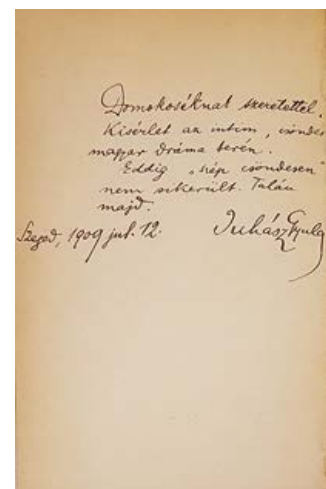 Domokoséknak szeretettel.
Kisérlet az intim, csöndes
magyar dráma terén.
Eddig „szép csöndesen"
nem sikerült. Talán
majd.
Szeged, 1909 jul. 12. Juhász Gyula